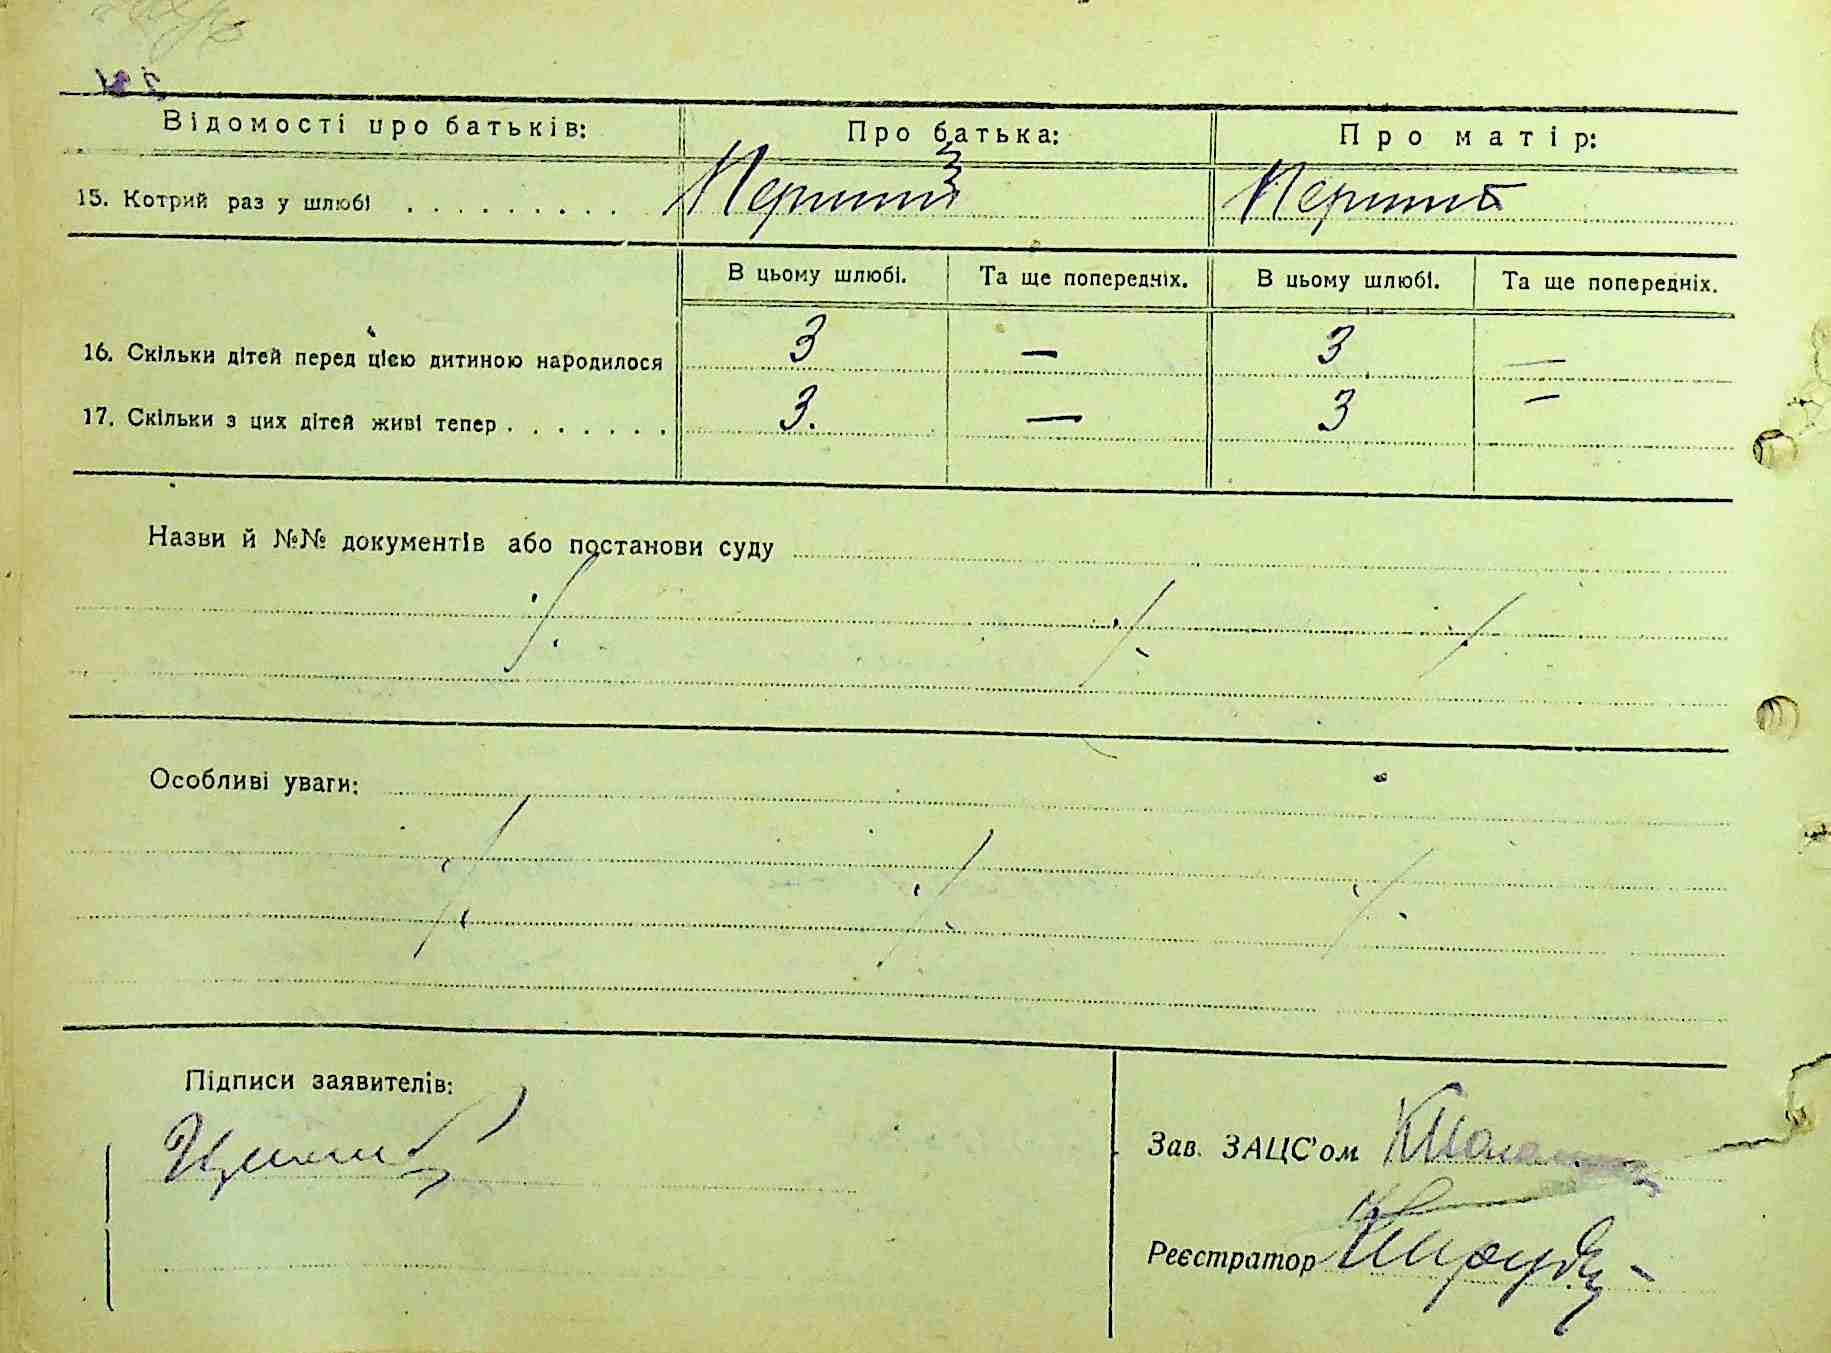 Відомості про батьків: Про батька: Про матір:
15. Котрий раз у шлюбі . . . . . . . . . Перший Перший
В цьому шлюбі. Та ще попередніх. В цьому шлюбі. Та ще попередніх.
16. Скільки дітей перед цією дитиною народилося 3 — 3 —
17. Скільки з цих дітей живі тепер . . . . . . . 3. — 3 —
Назви й №№ документів або постанови суду
Особливі уваги:
Підписи заявителів:
Зав. ЗАЦС'ом
Реєстратор